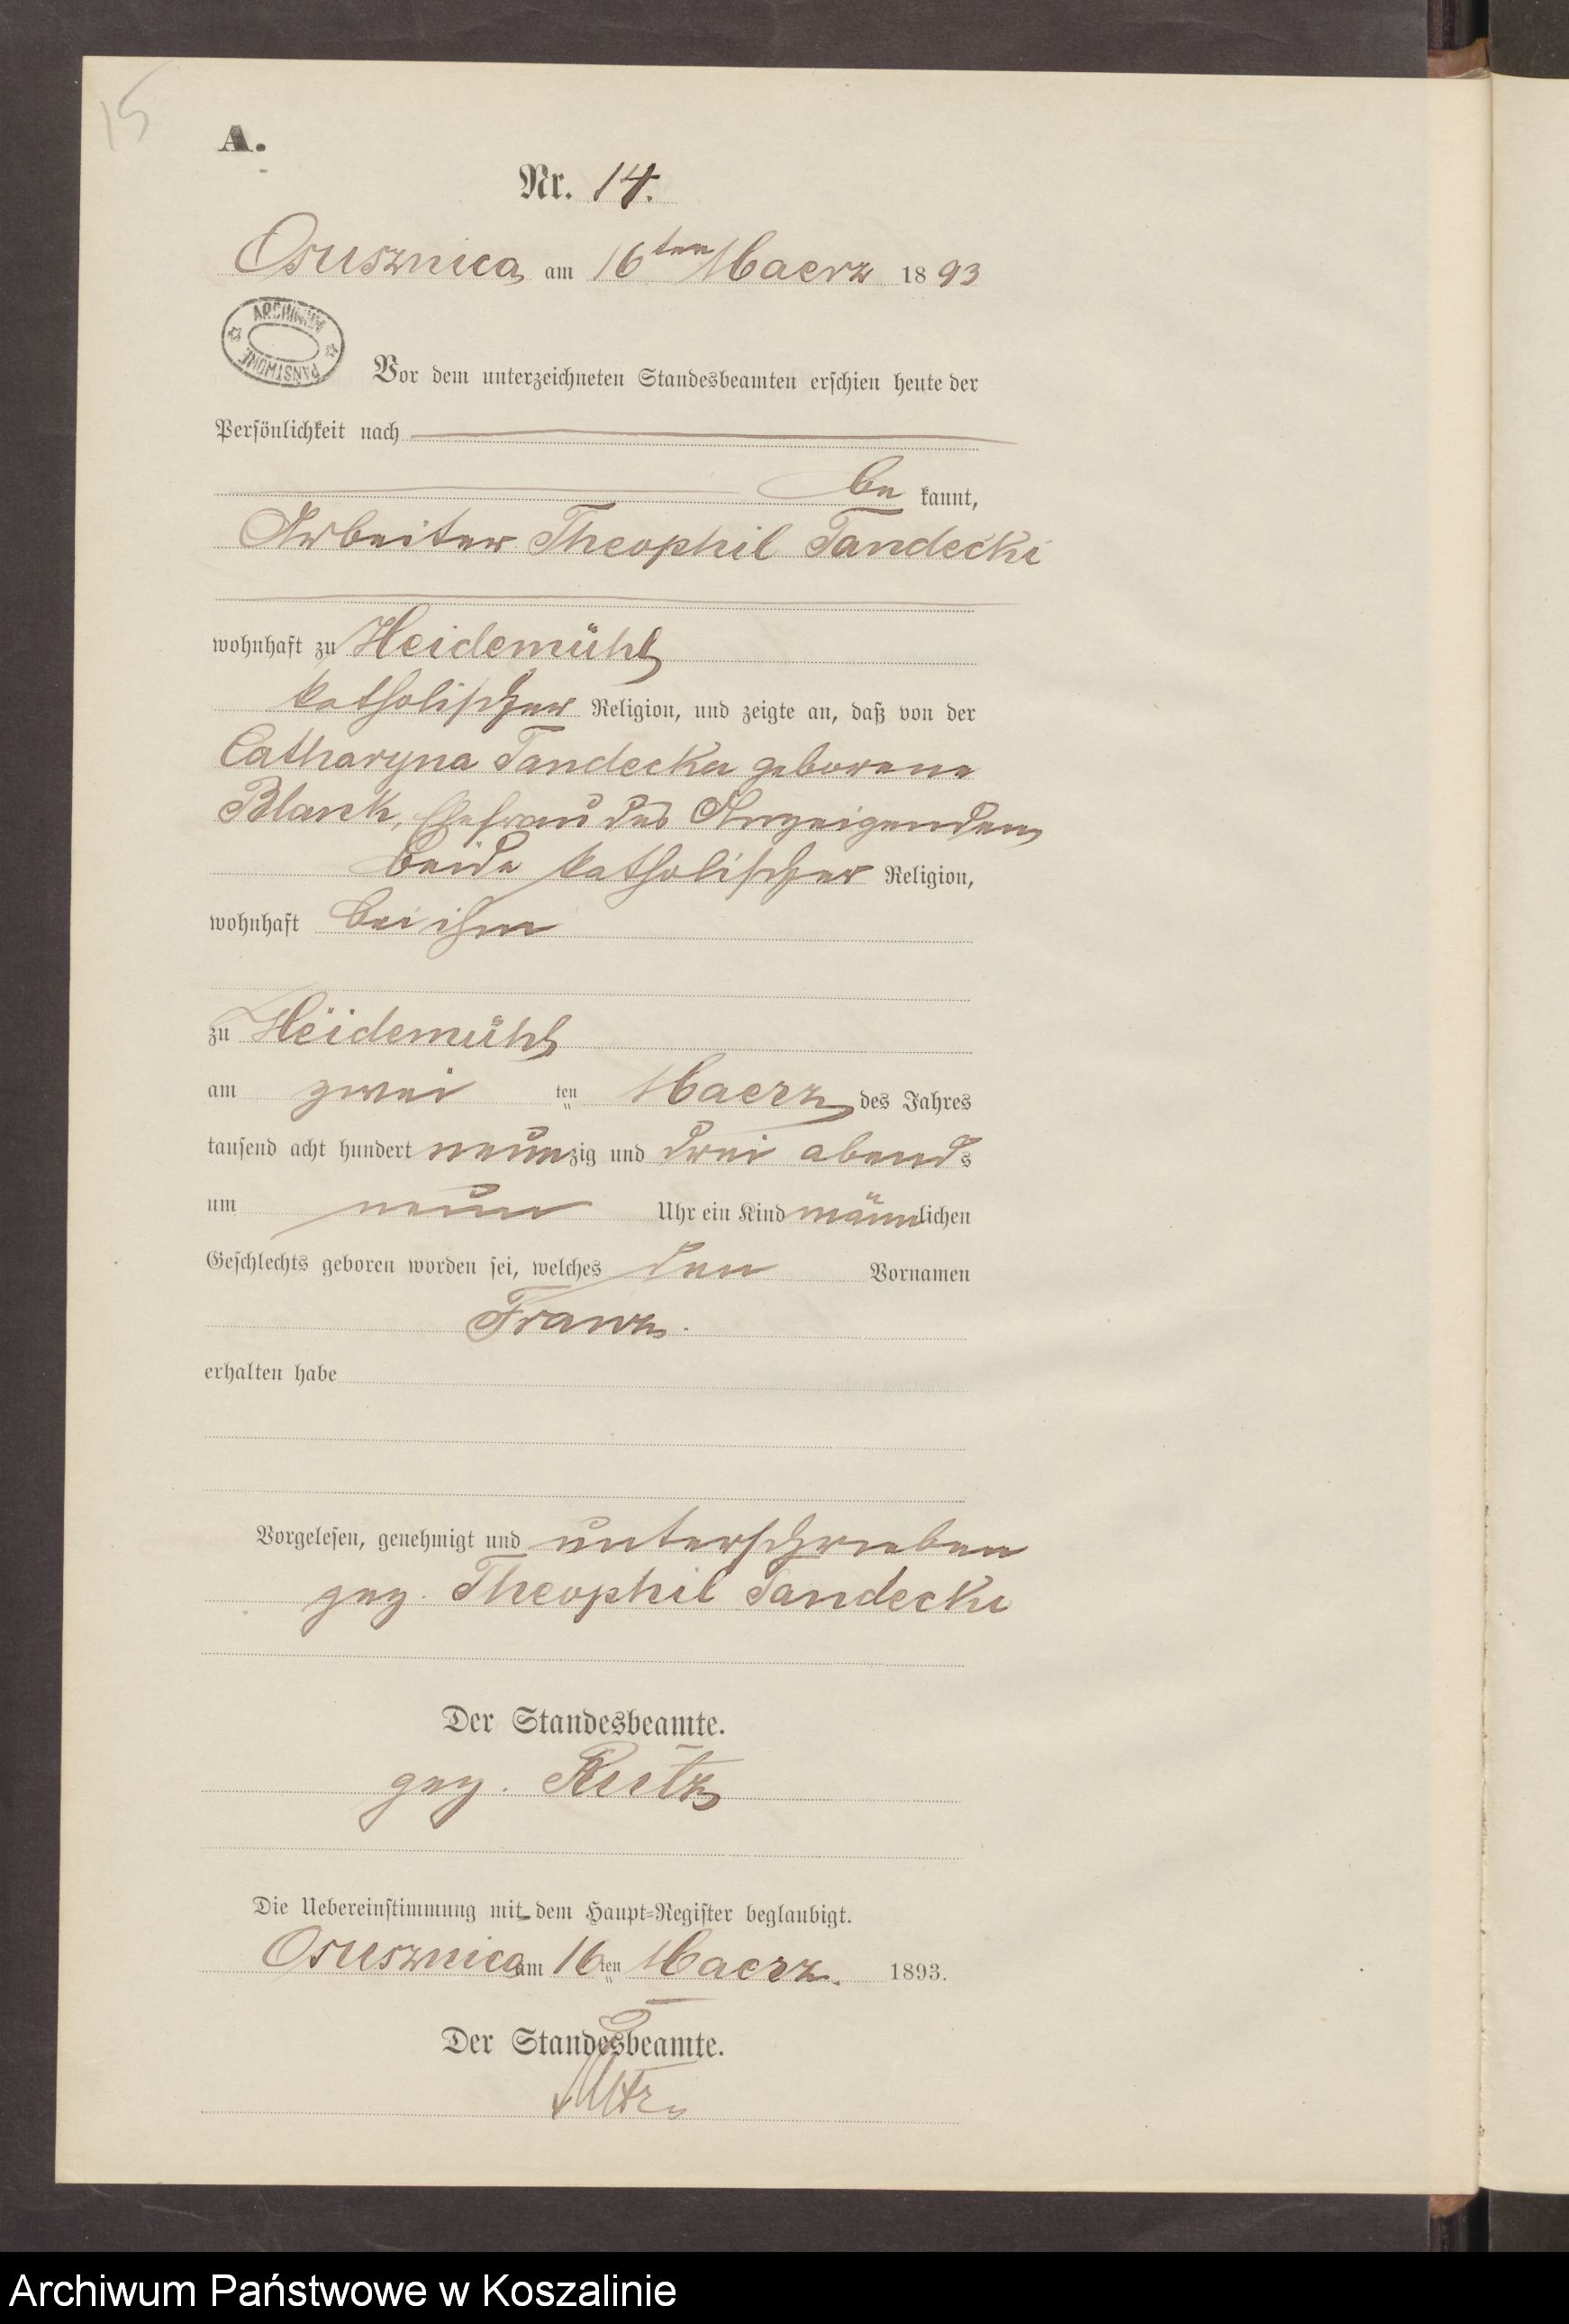 15
A.
Nr. 14.
Osusznica am 16ten Maerz 1893
ARCHIWUM
PAŃSTWOWE
Vor dem unterzeichneten Standesbeamten erschien heute der
Persönlichkeit nach
be kannt,
Arbeiter Theophil Tandecki
wohnhaft zu Heidemühl
katholischer Religion, und zeigte an, daß von der
Catharyna Tandecka geborene
Blank, Ehefrau des Anzeigenden,
beide katholischer Religion,
wohnhaft bei ihm
zu Heidemühl
am zwei ten Maerz des Jahres
tausend acht hundert neunzig und drei abends
um neun Uhr ein Kind männlichen
Geschlechts geboren worden sei, welches den Vornamen
Franz.
erhalten habe
Vorgelesen, genehmigt und unterschrieben
gez. Theophil Tandecki
Der Standesbeamte.
gez. Rutz
Die Uebereinstimmung mit dem Haupt-Register beglaubigt.
Osusznica am 16ten Maerz. 1893.
Der Standesbeamte.
Rutz
Archiwum Państwowe w Koszalinie